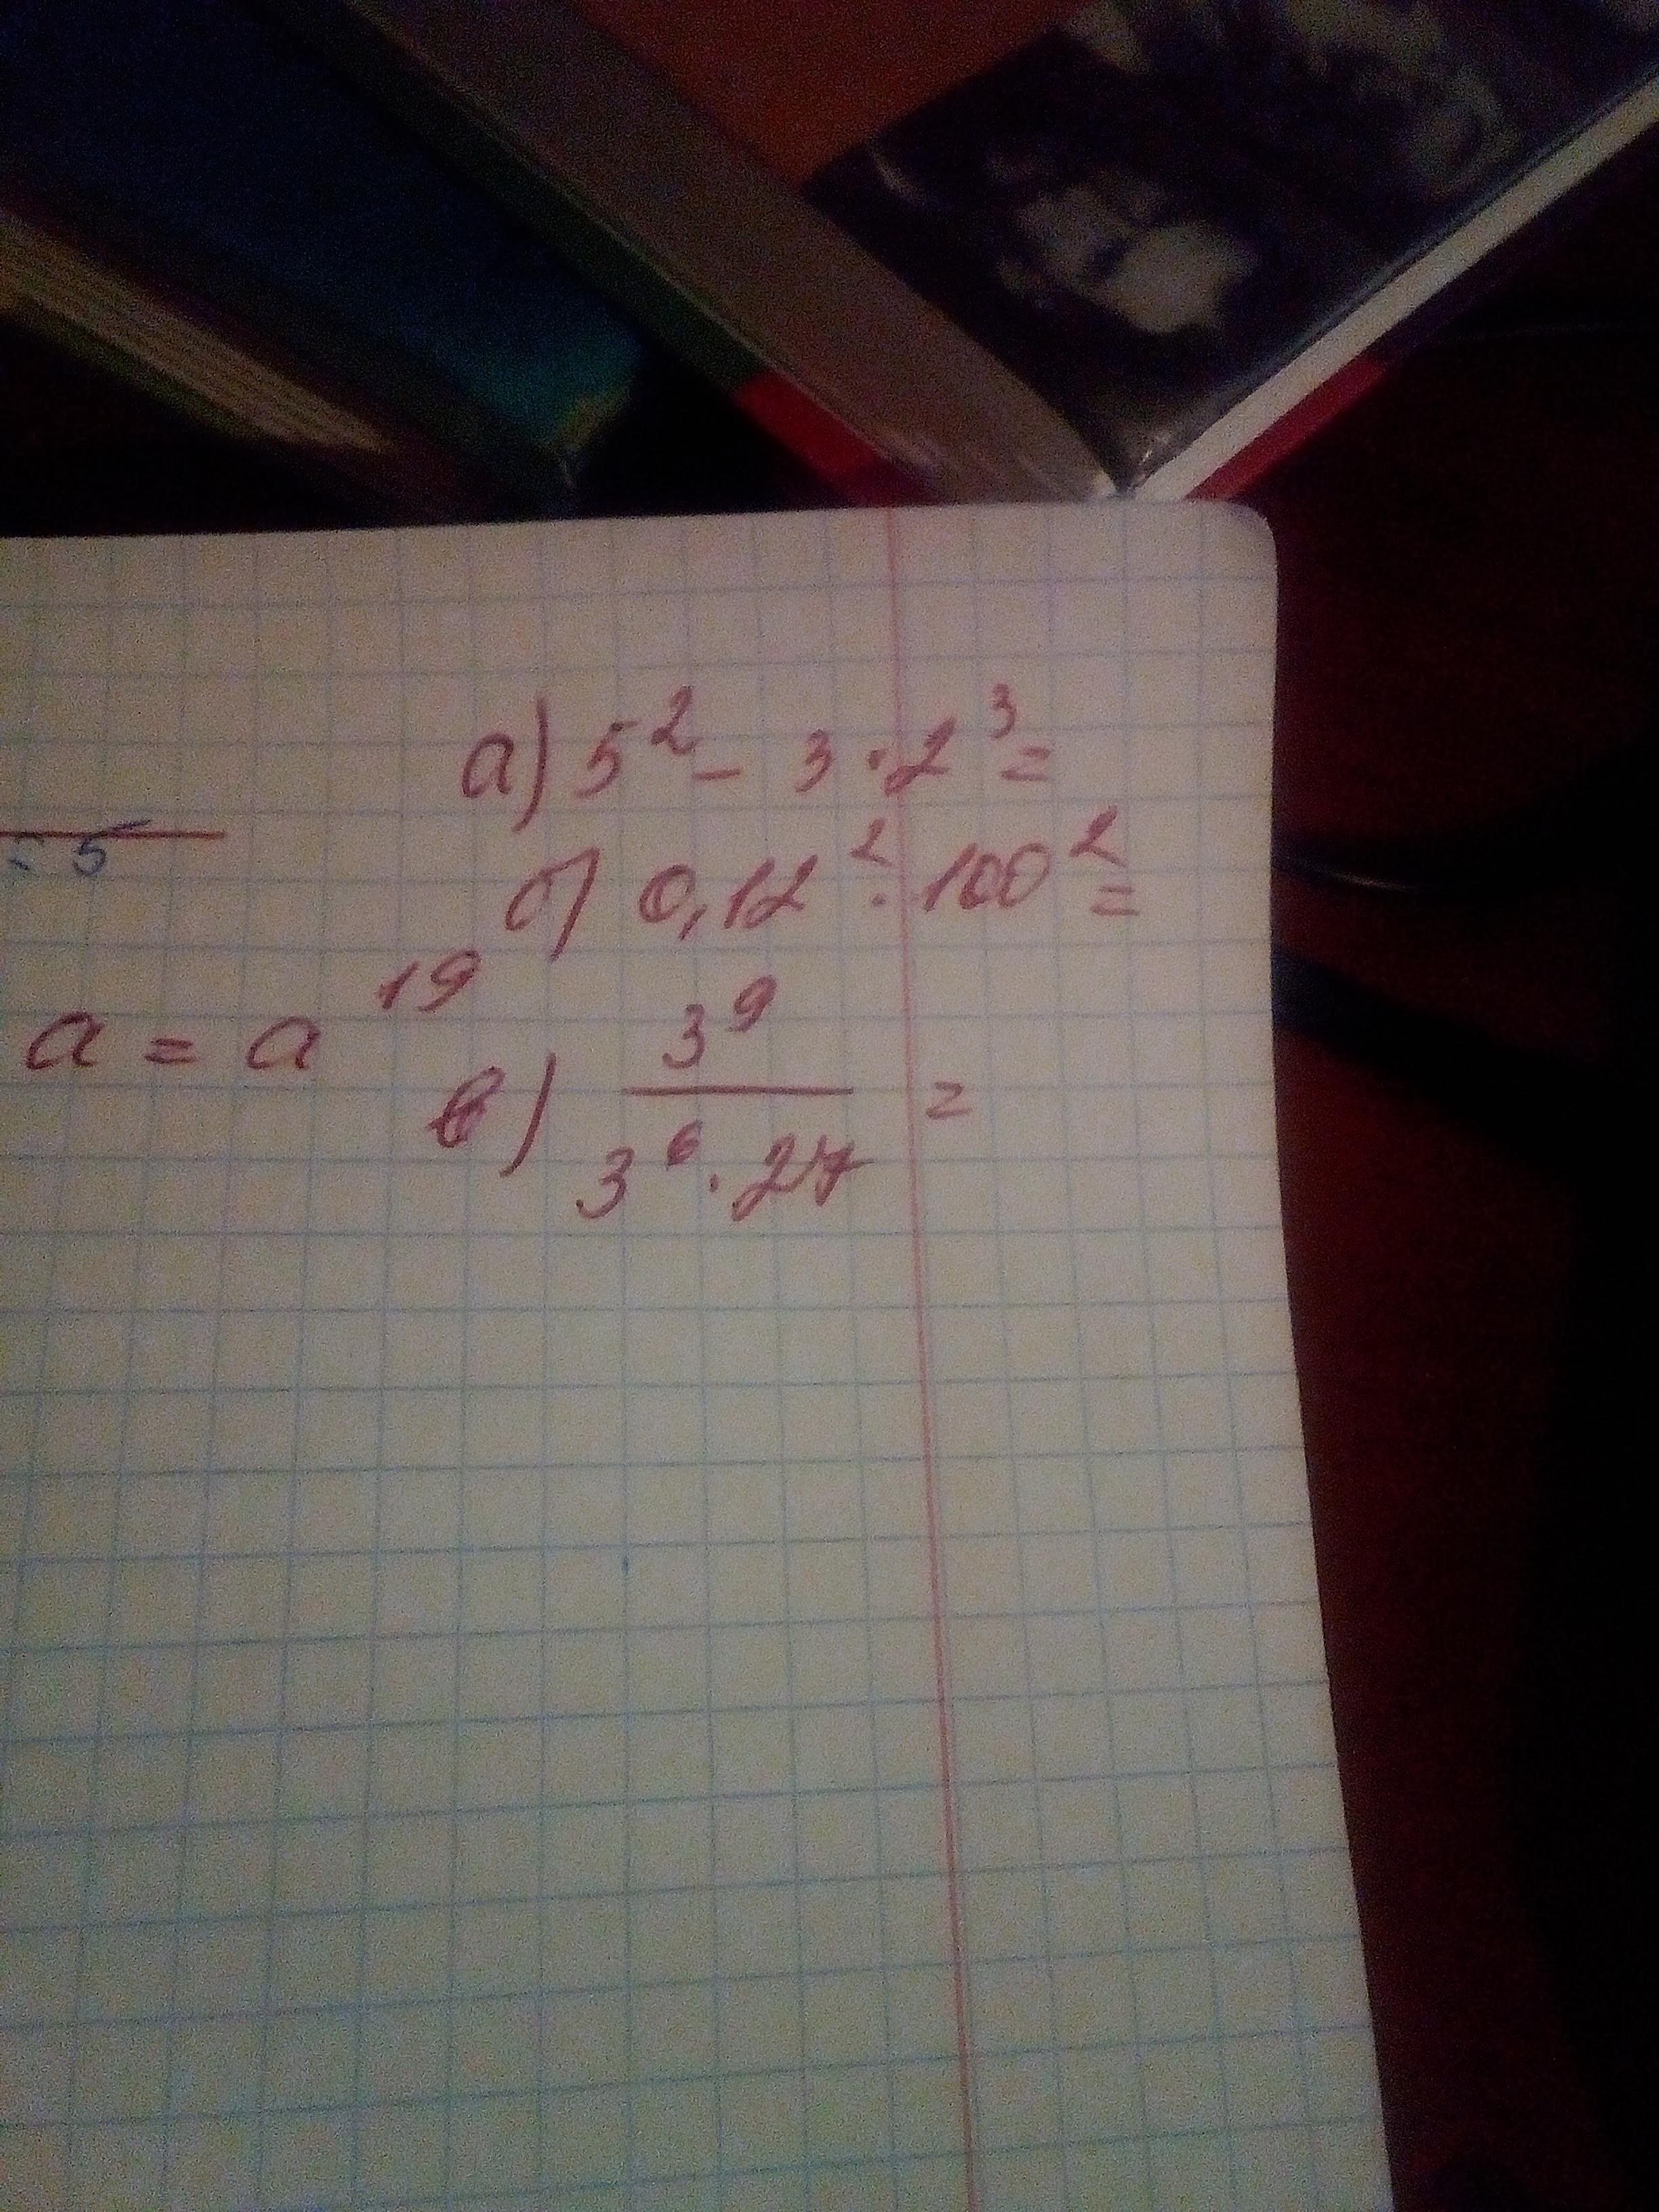 а) 5² - 3 · 2³ =
= 5
б) 0,12² · 100² =
a = a¹⁹
в) 3⁹ / 3⁶ · 27 =